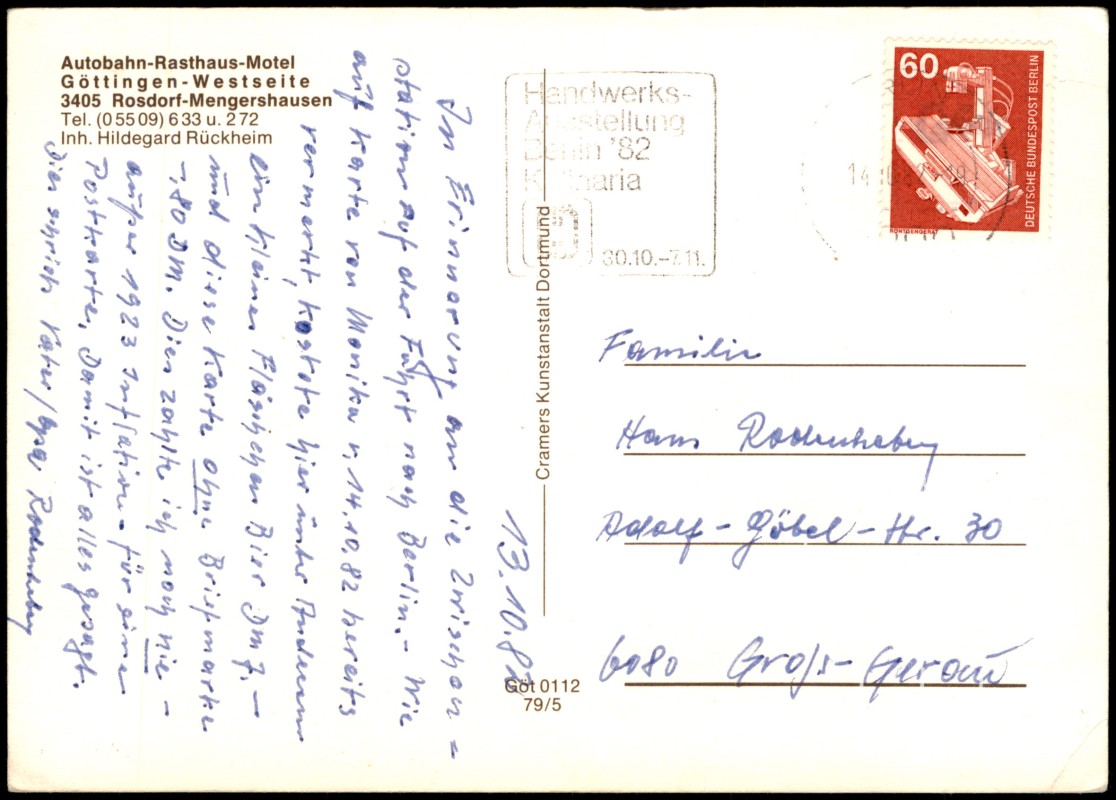 Autobahn-Rasthaus-Motel
Göttingen-Westseite
3405 Rosdorf-Mengershausen
Tel. (05509) 633 u. 272
Inh. Hildegard Rückheim
13.10.82
In Erinnerung an die Zwischen=
station auf der Fahrt nach Berlin. - Wie
auf Karte von Monika v. 14.10.82 bereits
vermerkt, kostete hier unter Anderem
ein kleines Fläschchen Bier DM 7.-
und diese Karte ohne Briefmarke
-.80 DM. Dies zahlte ich noch nie -
außer 1923 Inflation - für eine
Postkarte. Damit ist alles gesagt.
Dies schrieb Vater/Opa Rodenheber
Cramers Kunstanstalt Dortmund
Göt 0112
79/5
Handwerks-
Ausstellung
Berlin '82
Kulinaria
30.10.-7.11.
60
DEUTSCHE BUNDESPOST BERLIN
RÖNTGENGERÄT
Familie
Hans Rodenheber
Adolf-Göbel-Str. 30
6080 Groß-Gerau